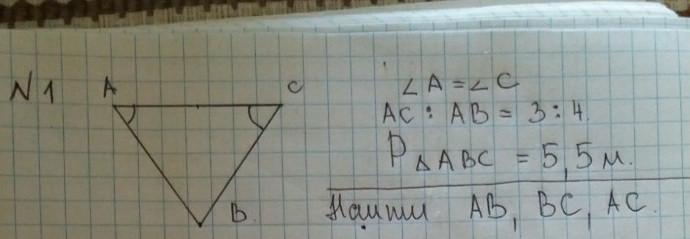 N 1
A
C
B.
∠A = ∠C
AC : AB = 3 : 4.
P△ABC = 5,5 м.
Найти AB, BC, AC.